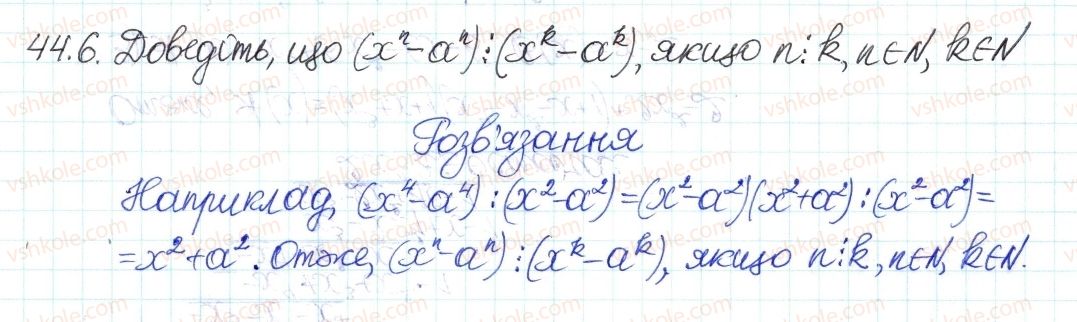 44.6. Доведіть, що (xⁿ-aⁿ)⋮(xᵏ-aᵏ), якщо n⋮k, n∈N, k∈N
Розв'язання
Наприклад, (x⁴-a⁴):(x²-a²)=(x²-a²)(x²+a²):(x²-a²)=
=x²+a². Отже, (xⁿ-aⁿ)⋮(xᵏ-aᵏ), якщо n⋮k, n∈N, k∈N.